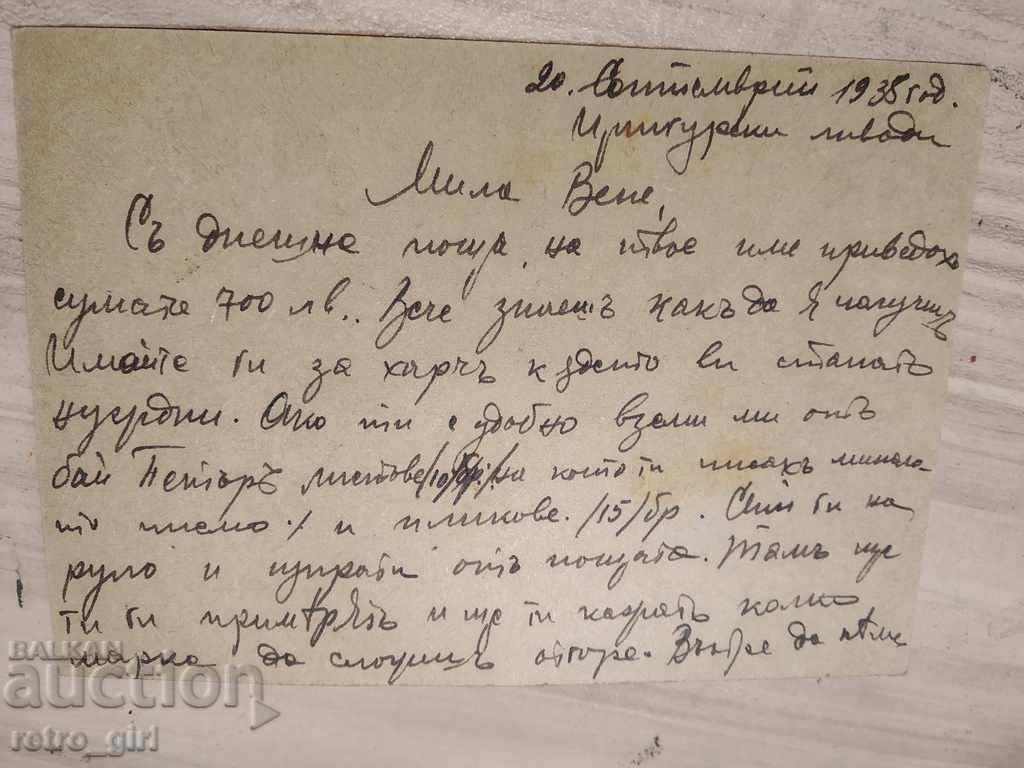 20. Септемврий 1938 год.
ливади
Мила Вене,
Съ днешна поща, на твое име приведохъ
сумата 700 лв.. Вече знаешъ какъ да я получишъ
Имайте ги за харчъ където ви станатъ
нуждни. Ако ти е удобно вземи ми отъ
бай Петъръ листове /10 бр./ на които ти писахъ минало-
то писмо / и пликове /15/ бр. Свий ги на
руло и изпрати отъ пощата. Тамъ ще
ти ги и ще ти кажатъ колко
марка да сложишъ отгоре. Вътре да нѣма
BALKAN
auction
retro_girl